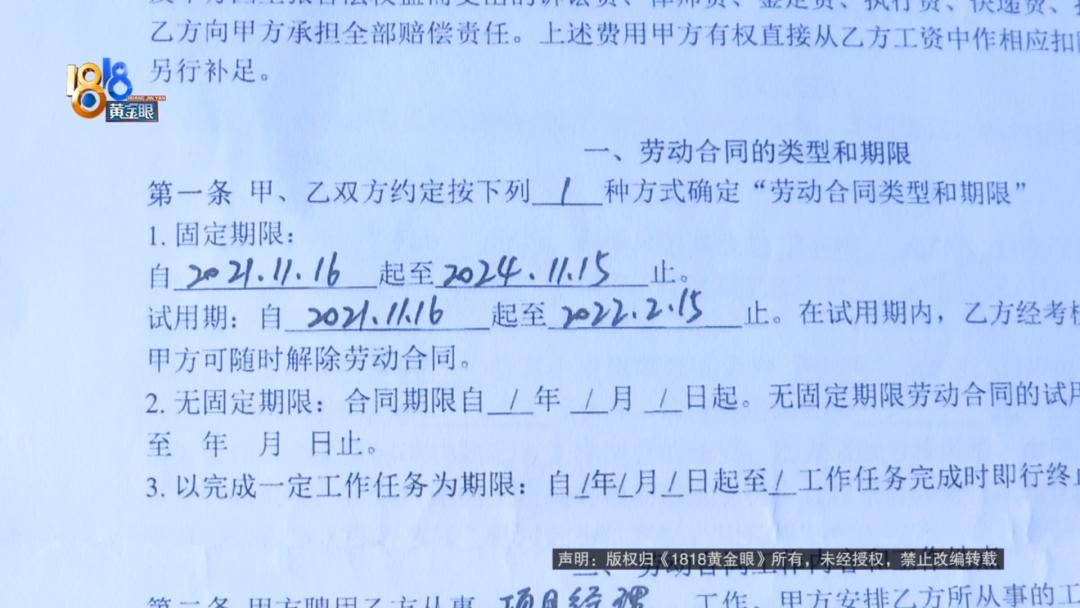 乙方向甲方承担全部赔偿责任。上述费用甲方有权直接从乙方工资中作相应扣
另行补足。
1818
黄金眼
一、劳动合同的类型和期限
第一条 甲、乙双方约定按下列 1 种方式确定“劳动合同类型和期限”
1. 固定期限：
自 2021.11.16 起至 2024.11.15 止。
试用期：自 2021.11.16 起至 2022.2.15 止。在试用期内，乙方经考
甲方可随时解除劳动合同。
2. 无固定期限：合同期限自 / 年 / 月 / 日起。无固定期限劳动合同的试用
至 年 月 日止。
3. 以完成一定工作任务为期限：自/年/月/日起至/工作任务完成时即行终
声明：版权归《1818黄金眼》所有，未经授权，禁止改编转载
第二条 甲方聘用乙方从事 项目经理 工作，甲方安排乙方所从事的工